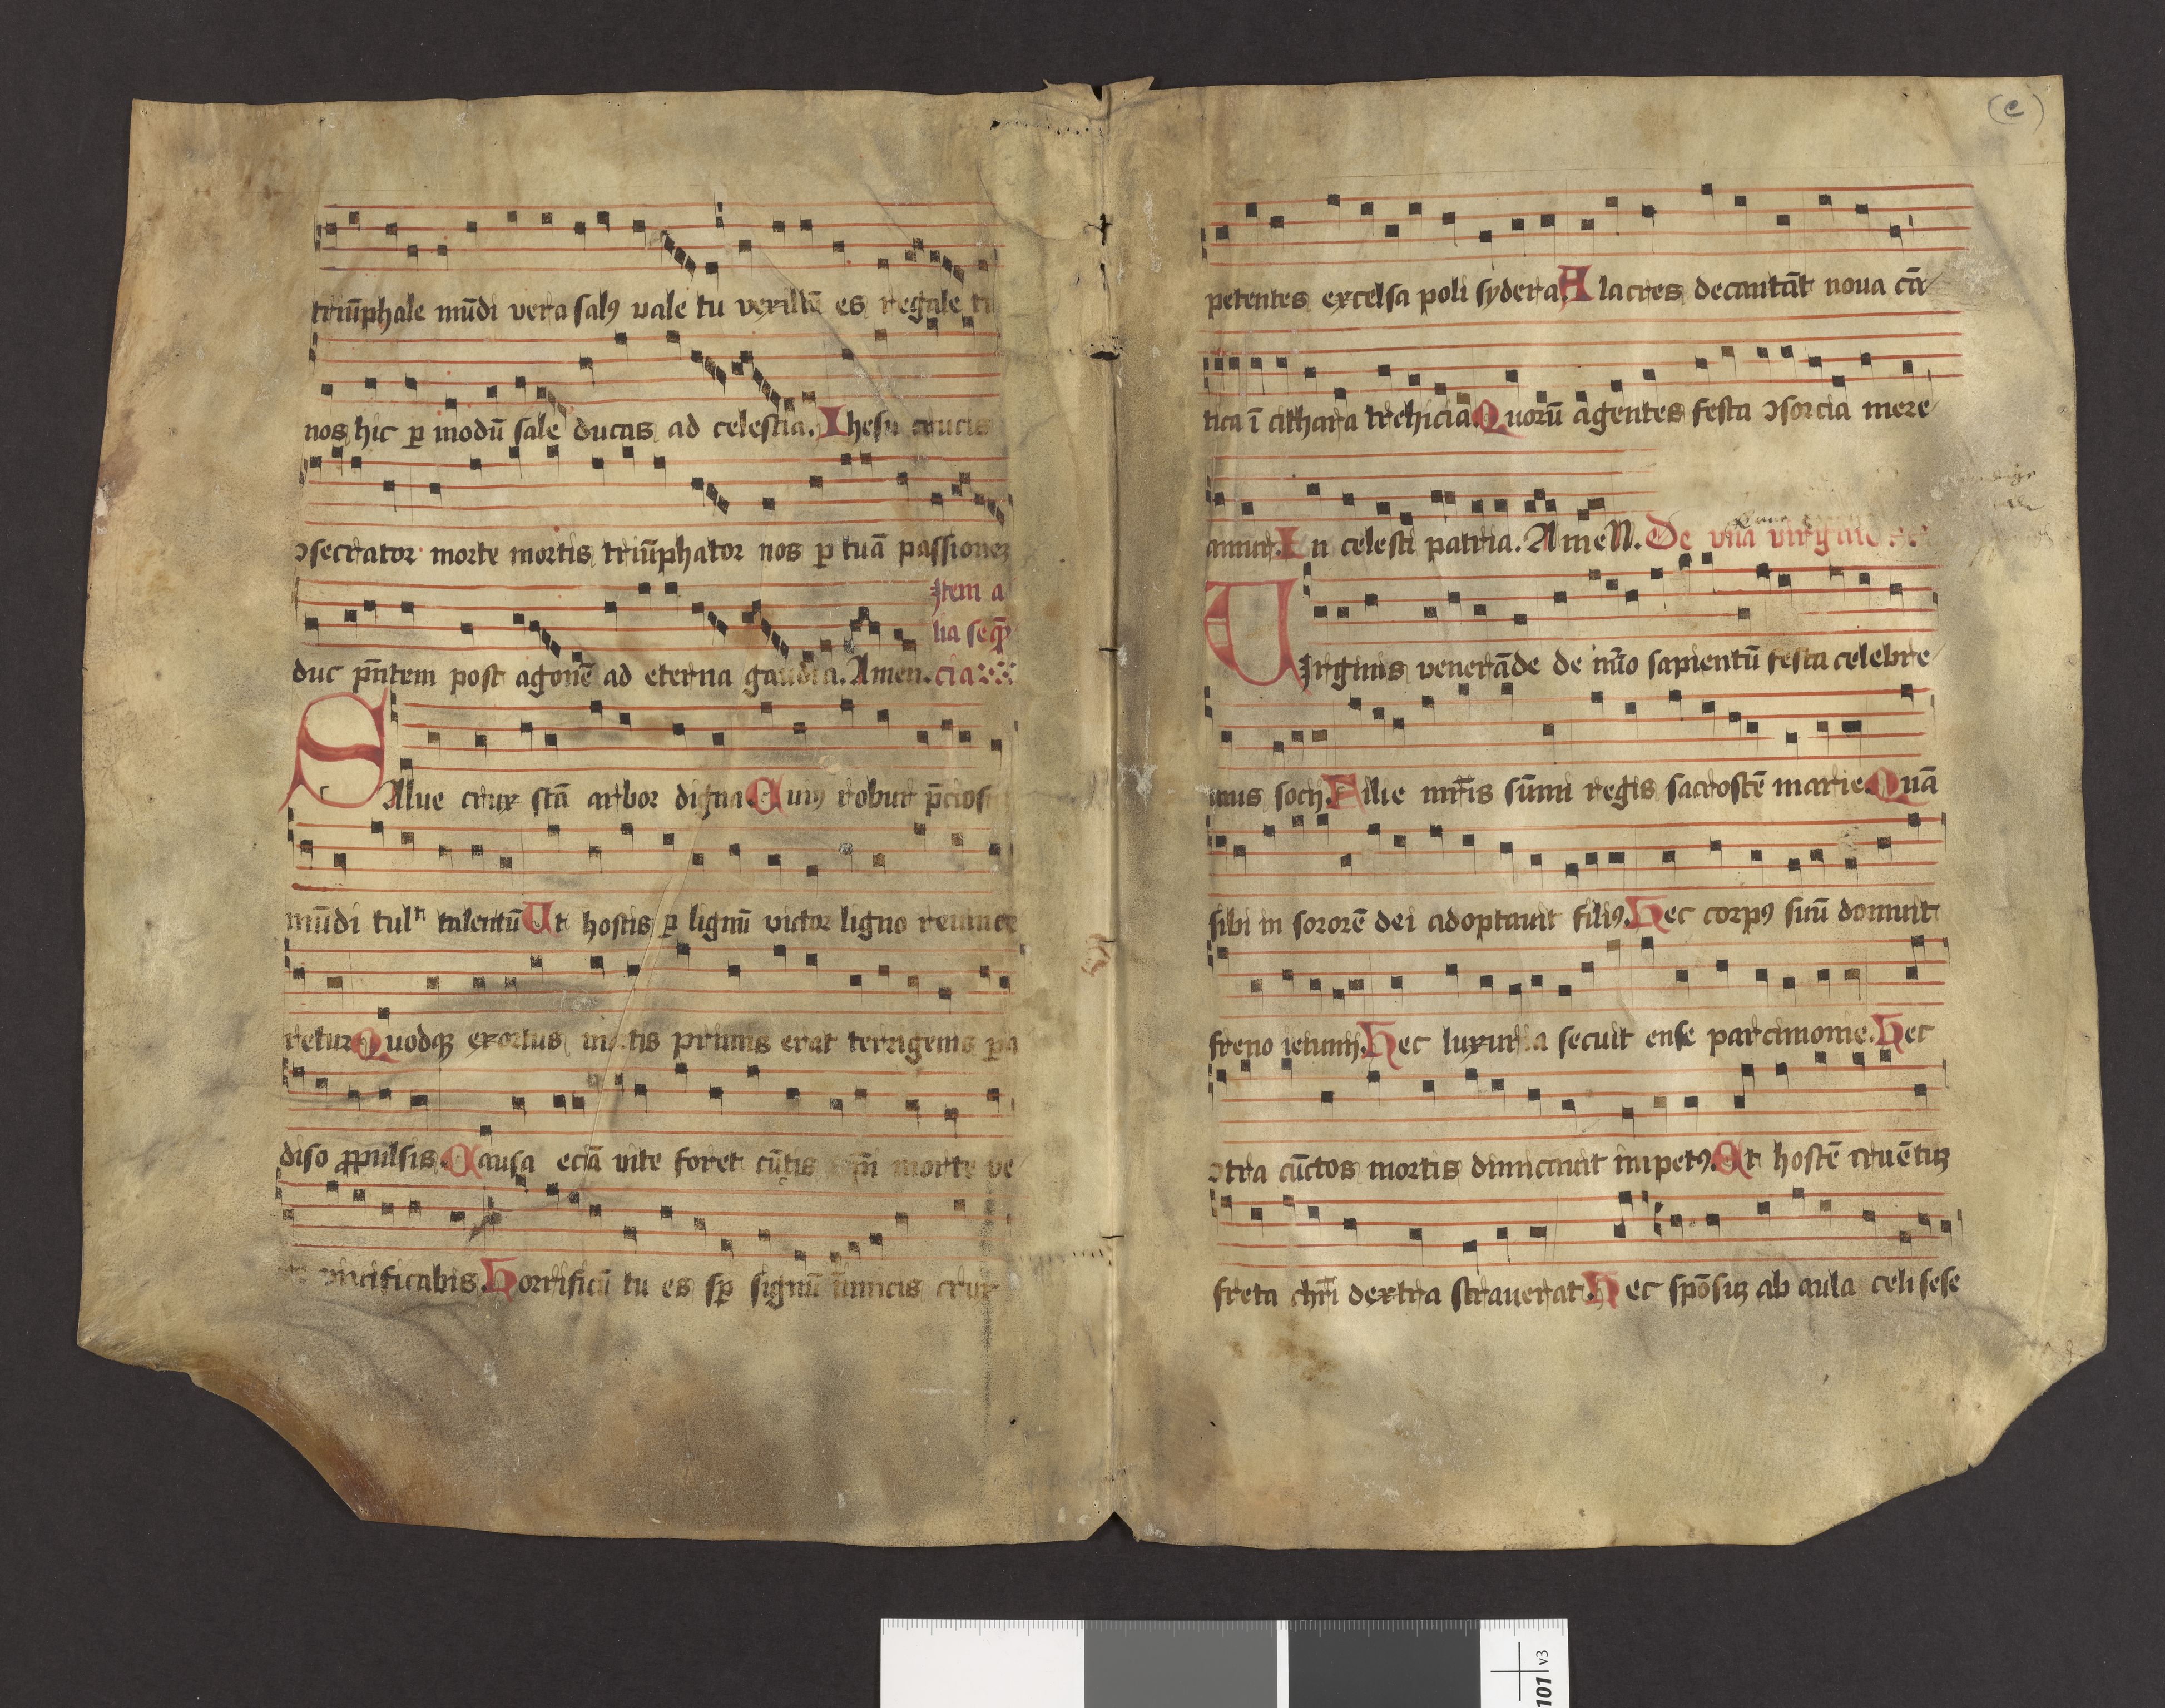 (e)
triūphale mūdi vera salꝰ vale tu vexillū es regale tu
nos hic ꝑ modū sale ducas ad celestia. Ihesu crucis
ↄsecrator morte mortis triūphator nos ꝑ tuā passionem
Item a
lia seqꝫ
duc p̄ntem post agonē ad eterna gaudia. Amen. cia
SAlue crux scā arbor digna Cuiꝰ robur p̄cios
mūdi tulit talentū Ut hostis ꝑ lignū victor ligno reuince
retur Quodqꝫ exortus primis erat terrigenis pa
diso ꝓpulsis. Causa eciā vite foret cūctis morte ve
viuificabis. Horrificū tu es sꝑ signū inimicis crux
petentes excelsa poli sydera. Alacres decantāt noua cā
tica ī cithara trehicia. Quorū agentes festa ↄsorcia mere
amur. In celesti patria. AmeN. De vna virgine
UIrginis venerāde de nūo sapientū festa celebre
mus socij. Filie mr̄is sūmi regis sacrostē marie. Quā
sibi in sororē dei adoptauit filiꝰ. Hec corpꝰ suū domuit
freno ieiunij. Hec luxuria secuit ense parcimonie. Hec
ↄtra cūctos mortis dimicauit impetꝰ. Et hostē cruētuꝫ
freta chri dextra strauerat. Hec spōsuꝫ ab aula celi sese
101 v3